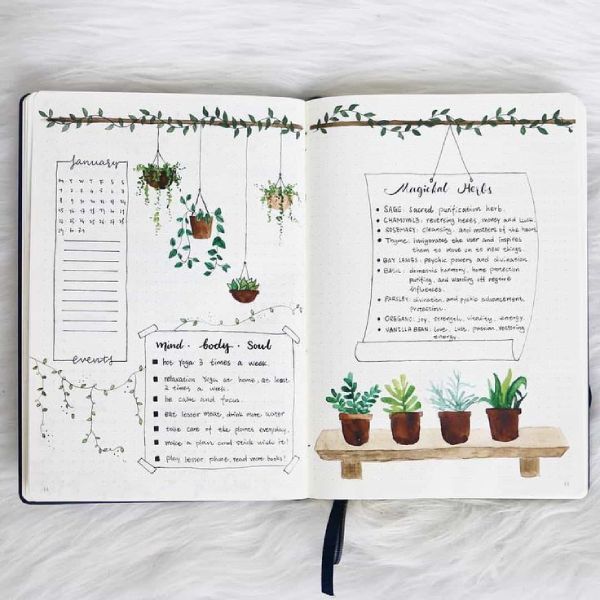 january
M T W T F S S
1 2 3 4 5 6 7
8 9 10 11 12 13 14
15 16 17 18 19 20 21
22 23 24 25 26 27 28
29 30 31
events
mind . body . soul
hot yoga 3 times a week.
relaxation yoga at home, at least
2 times a week.
be calm and focus.
eat lesser meat, drink more water
take care of the plants everyday.
make a plan and stick with it!
play lesser, phone, read more books!
Magickal Herbs
SAGE: sacred purification herb.
CHAMOMILE: reversing hexes, money and luck.
ROSEMARY: cleansing, and matters of the heart.
Thyme: invigorates the user and inspires
them to move on to new things.
BAY LEAVES: psychic powers and divination.
BASIL: domestic harmony, home protection
purifying, and warding off negative
influences.
PARSLEY: divination, and protection.
OREGANO: joy, strength, vitality, energy.
VANILLA BEAN: love, lust, passion, restoring
energy.